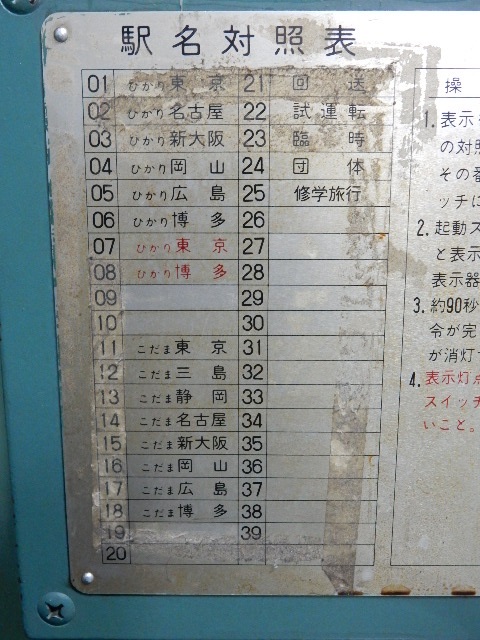 駅名対照表
01 ひかり 東京 21 回送
02 ひかり 名古屋 22 試運転
03 ひかり 新大阪 23 臨時
04 ひかり 岡山 24 団体
05 ひかり 広島 25 修学旅行
06 ひかり 博多 26
07 ひかり 東京 27
08 ひかり 博多 28
09 29
10 30
11 こだま 東京 31
12 こだま 三島 32
13 こだま 静岡 33
14 こだま 名古屋 34
15 こだま 新大阪 35
16 こだま 岡山 36
17 こだま 広島 37
18 こだま 博多 38
19 39
20
操
1. 表示
の対照
その番
ッチに
2. 起動ス
と表示
表示器
3. 約90秒
令が完
が消灯
4. 表示灯点
スイッチ
いこと。